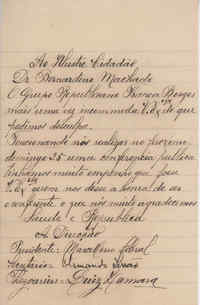 Ao Illustre Cidadão
Dr. Bernardino Machado
O Grupo Republicano França Borges
mais uma vez incommoda V. Exª do que
pedimos desculpa.
Tencionando nós realizar no proximo
domingo 25 uma conferencia publica
tinhamos muito empenho que fosse
V. Exª quem nos desse a honra de ser
conferente o que nós muito agradecemos
Saude e Republica
A Direcção
Presidente: Marcelino Cabral
Secretario: Armando
Thezoureiro: Luiz Ramos